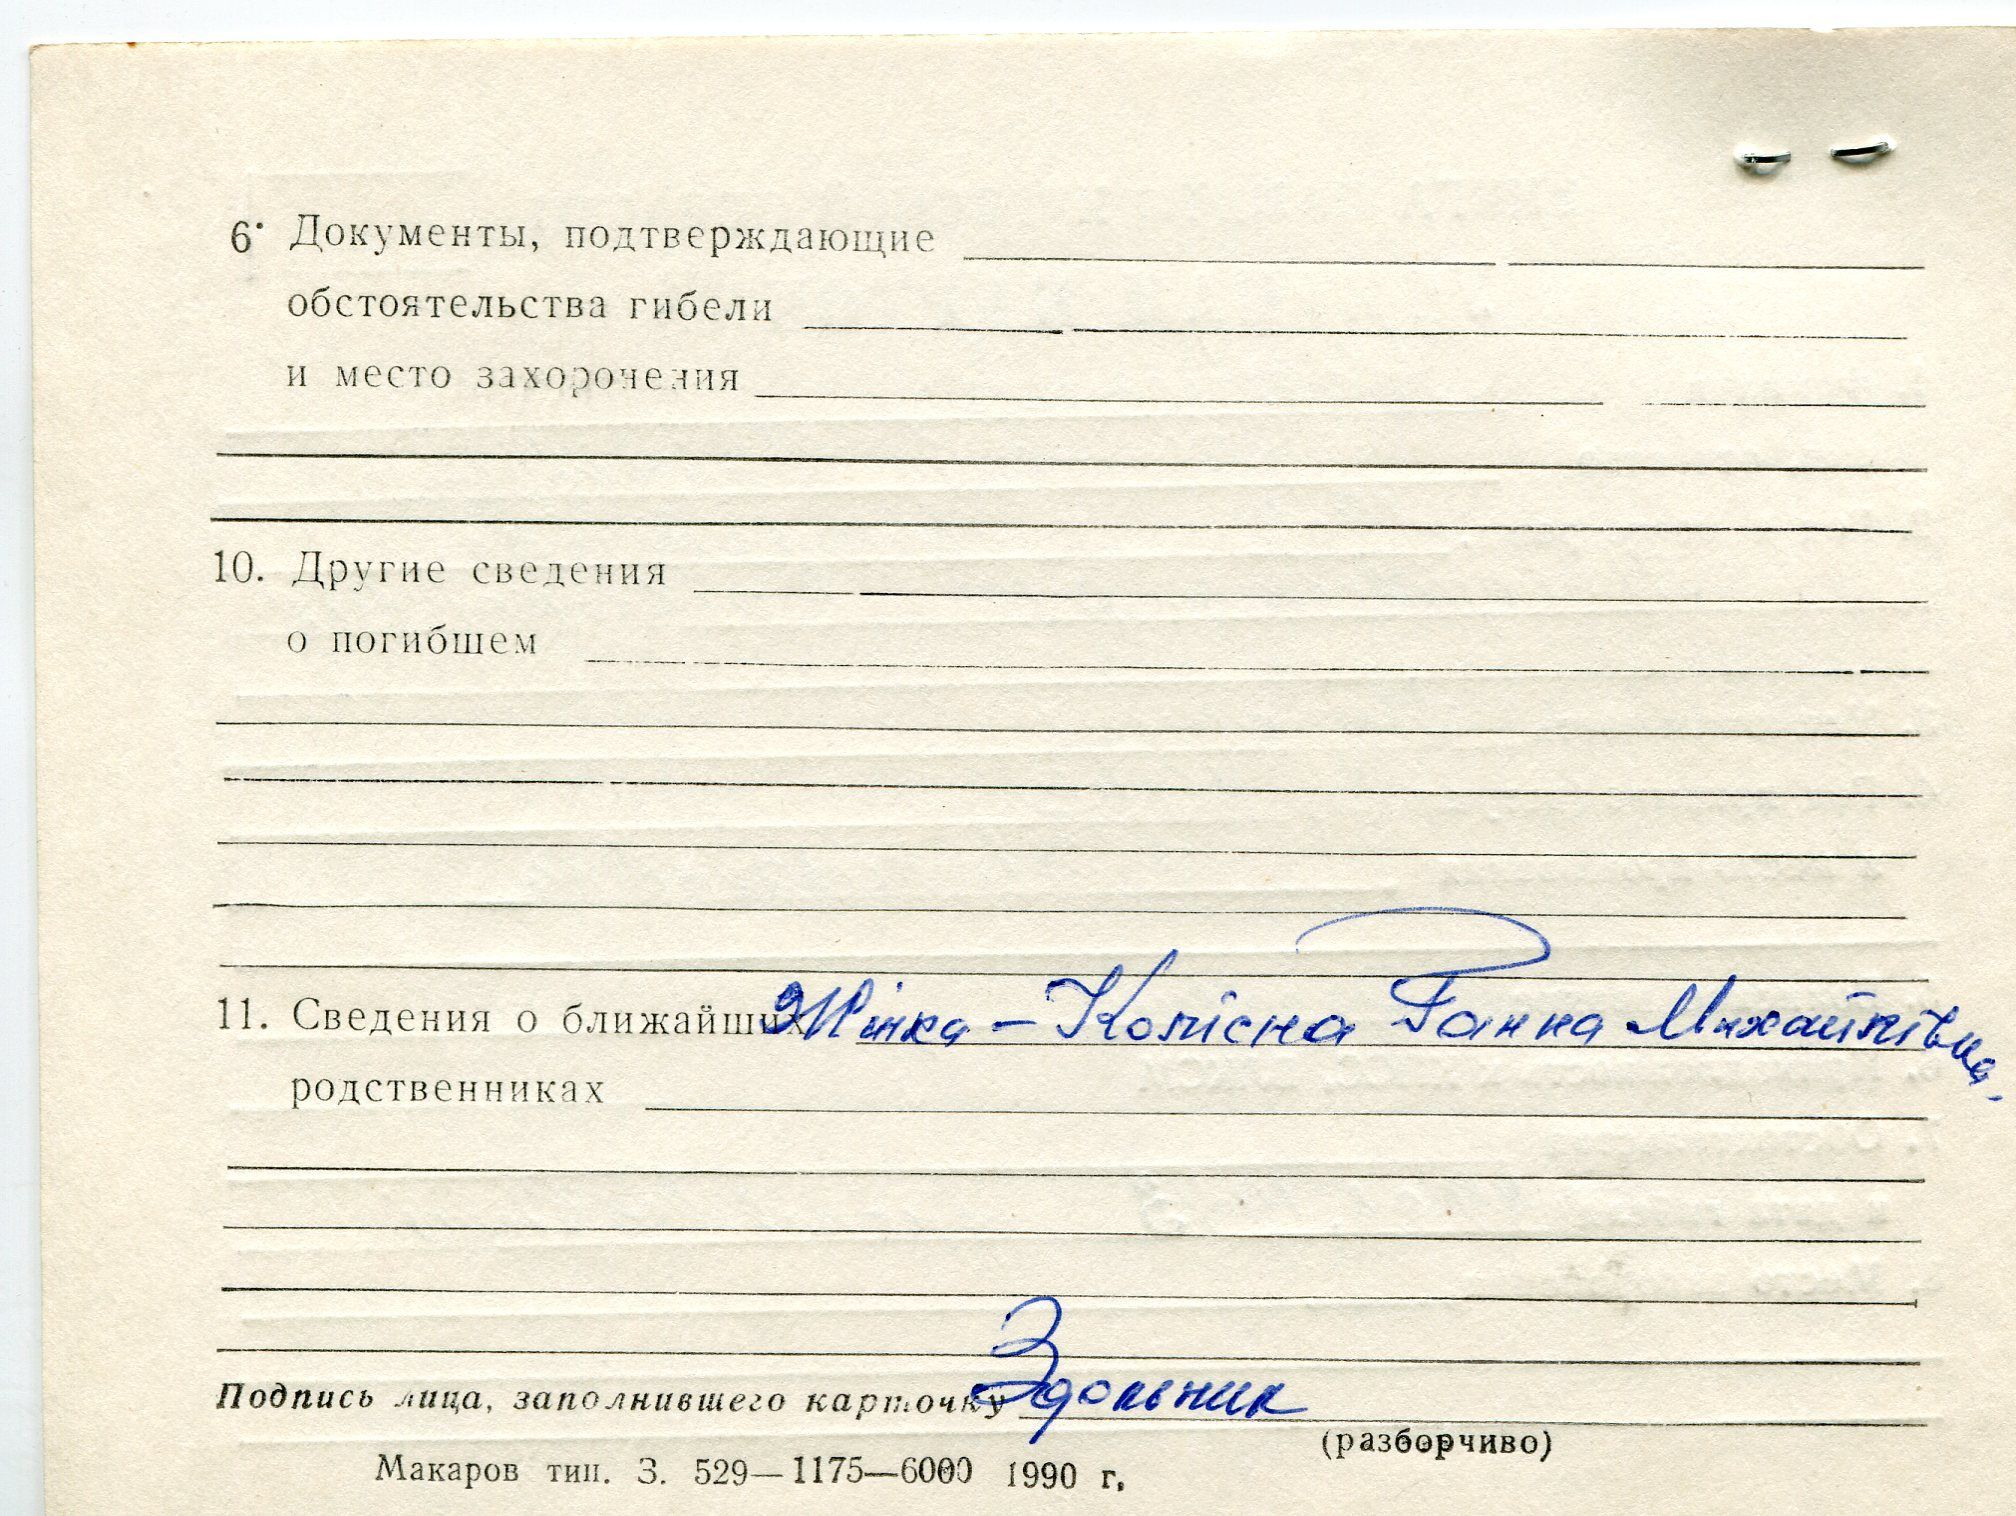 6. Документы, подтверждающие
обстоятельства гибели
и место захоронения
10. Другие сведения
о погибшем
11. Сведения о ближайших Жінка – Колісна Ганна Михайлівна.
родственниках
Подпись лица, заполнившего карточку Здольник
(разборчиво)
Макаров тип. З. 529—1175—6000 1990 г.